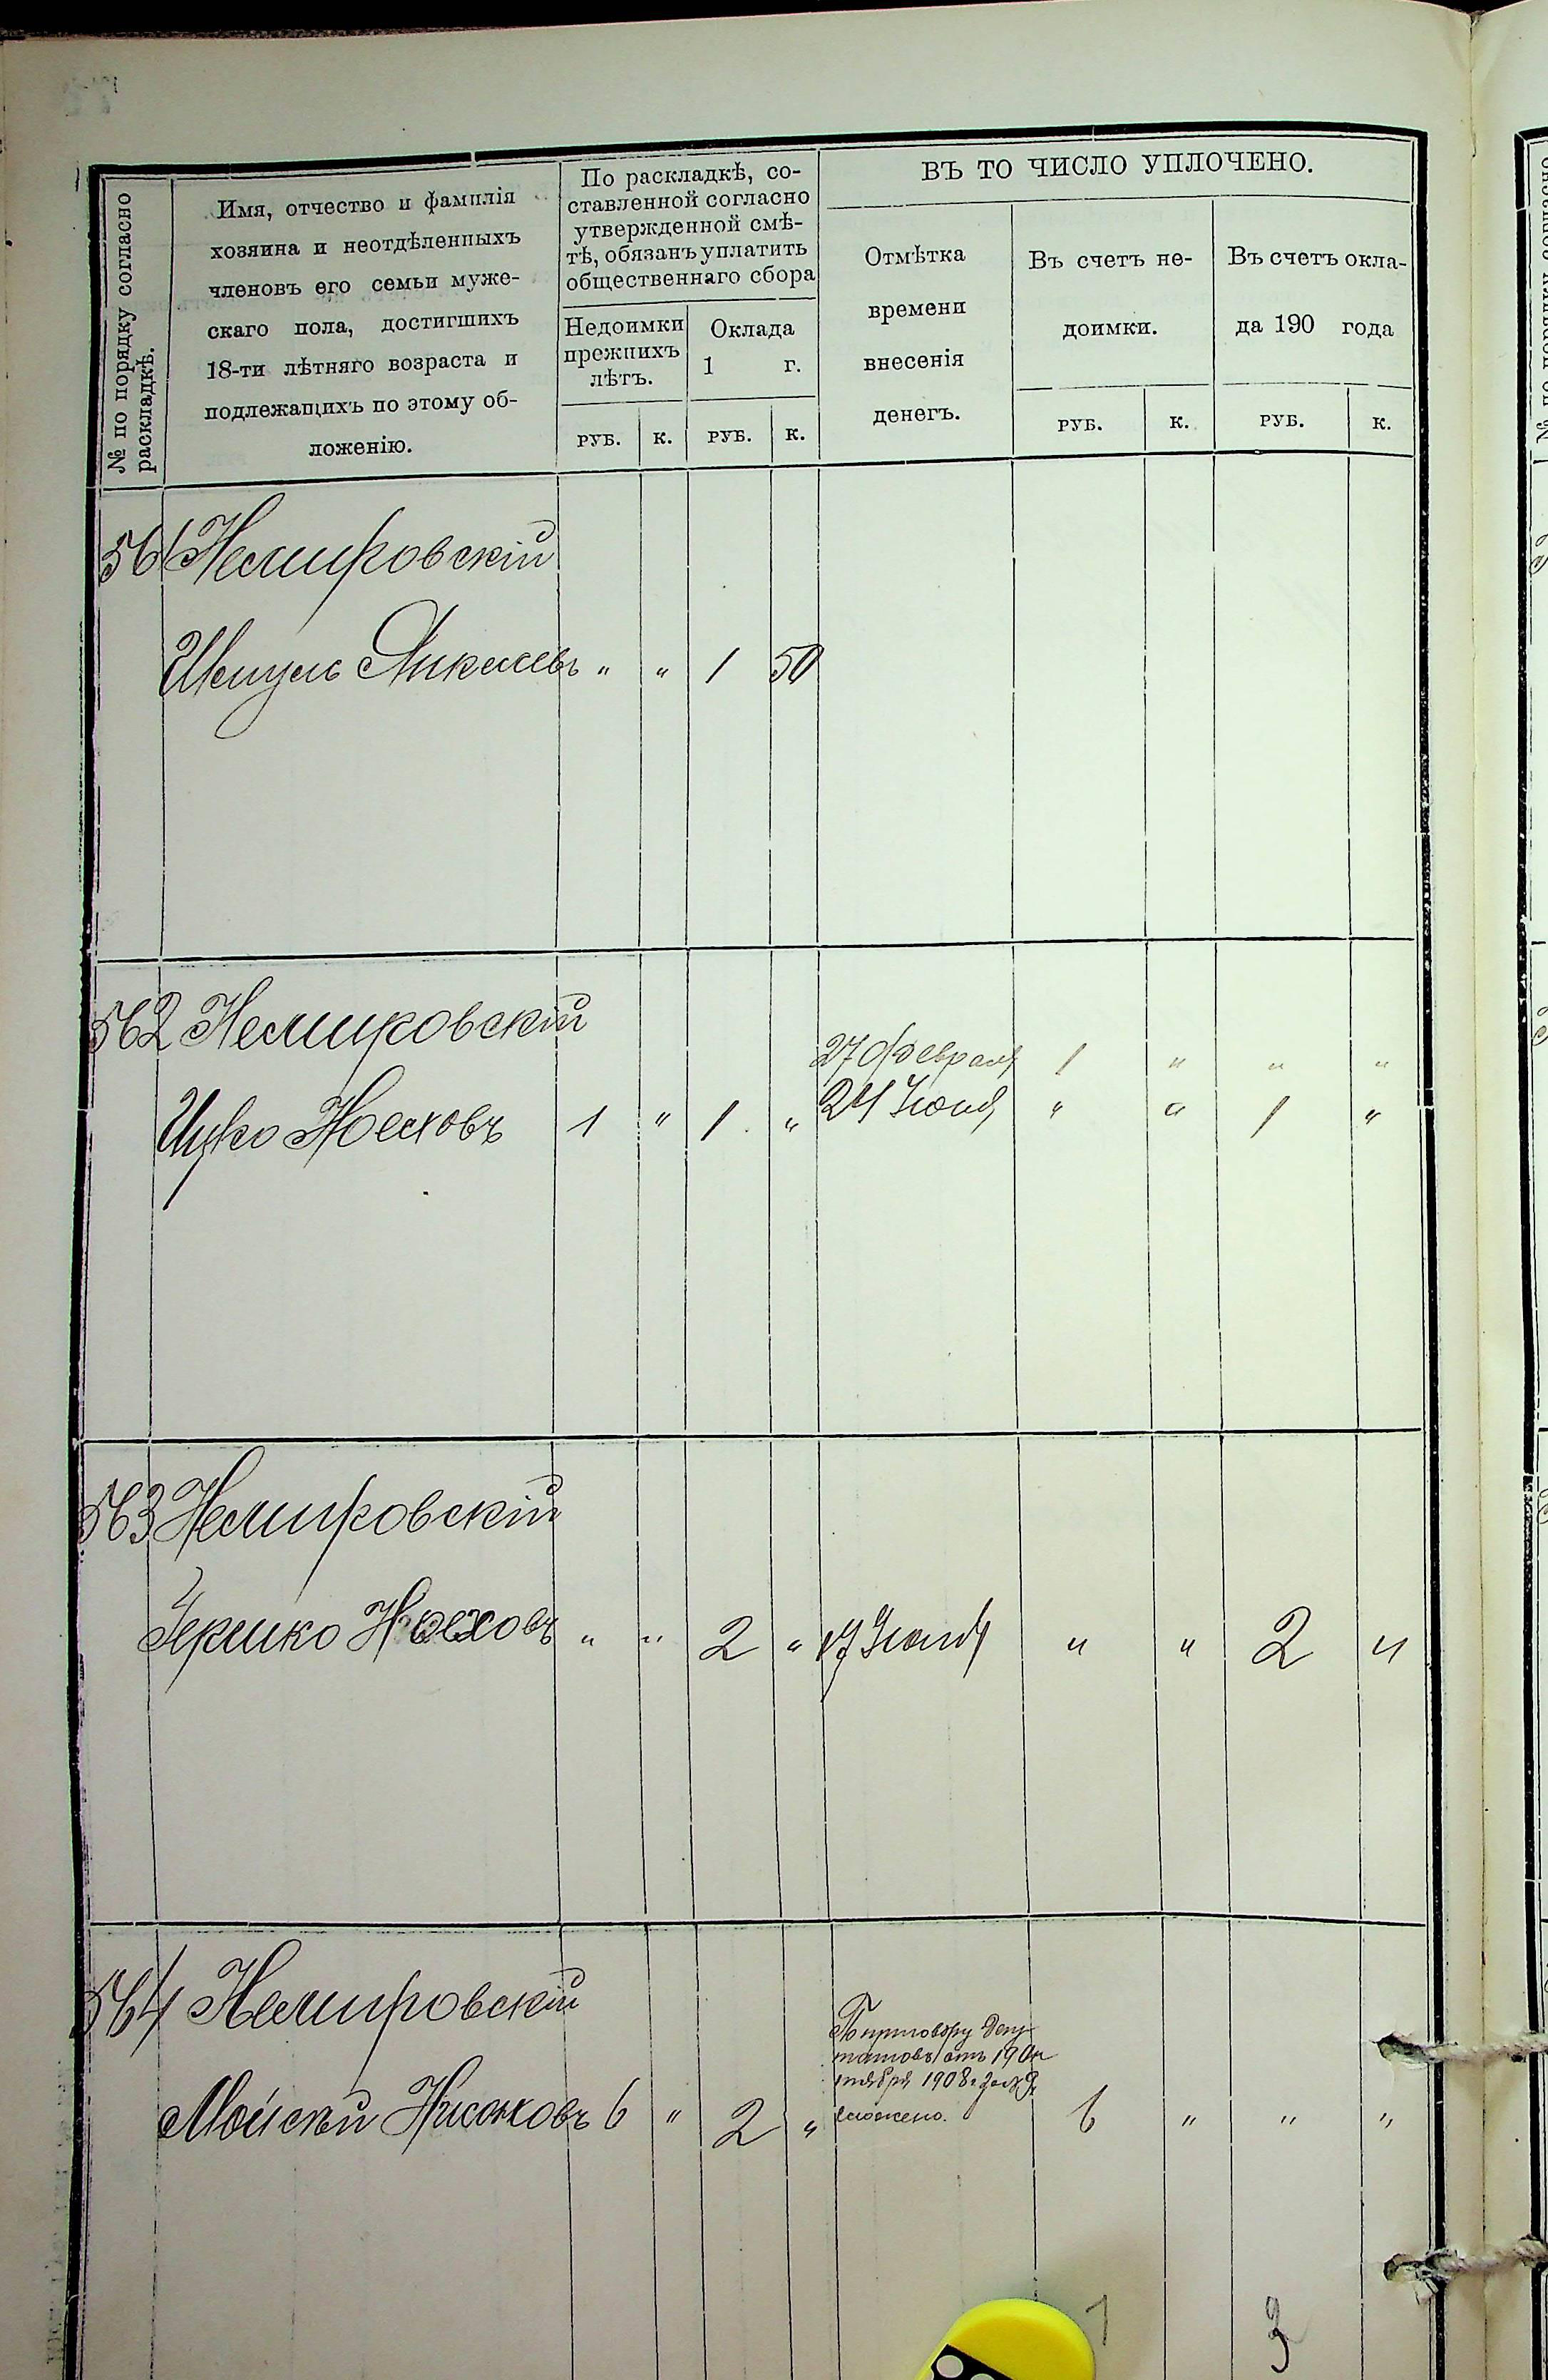 № по порядку согласно
раскладкѣ.
Имя, отчество и фамилія
хозяина и неотдѣленныхъ
членовъ его семьи муже-
скаго пола, достигшихъ
18-ти лѣтняго возраста и
подлежащихъ по этому об-
ложенію.
По раскладкѣ, со-
ставленной согласно
утвержденной смѣ-
тѣ, обязанъ уплатить
общественнаго сбора
Недоимки
прежнихъ
лѣтъ.
Оклада
1 г.
ВЪ ТО ЧИСЛО УПЛОЧЕНО.
Отмѣтка
времени
внесенія
денегъ.
Въ счетъ не-
доимки.
Въ счетъ окла-
да 190 года
РУБ. К. РУБ. К. РУБ. К. РУБ. К.
561 Немировскій
Шмуль Янкелевъ " " 1 50
562 Немировскій
27 Февраля 1 " " "
Ицко Ноеховъ 1 " 1 " 24 Іюня " " 1 "
563 Немировскій
Гершко Ноеховъ " " 2 " 17 Іюля " " 2 "
564 Немировскій
приговору депу
татовъ отъ 19 Ок
тября 1908 г.
Мойсей 6 " 2 " сложено. 6 " " "
1
3